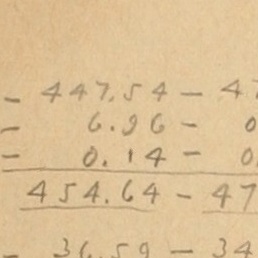 - 447.54 - 47
- 6.96 - 0
- 0.14 - 0.
454.64 - 47
- 36.59 - 34